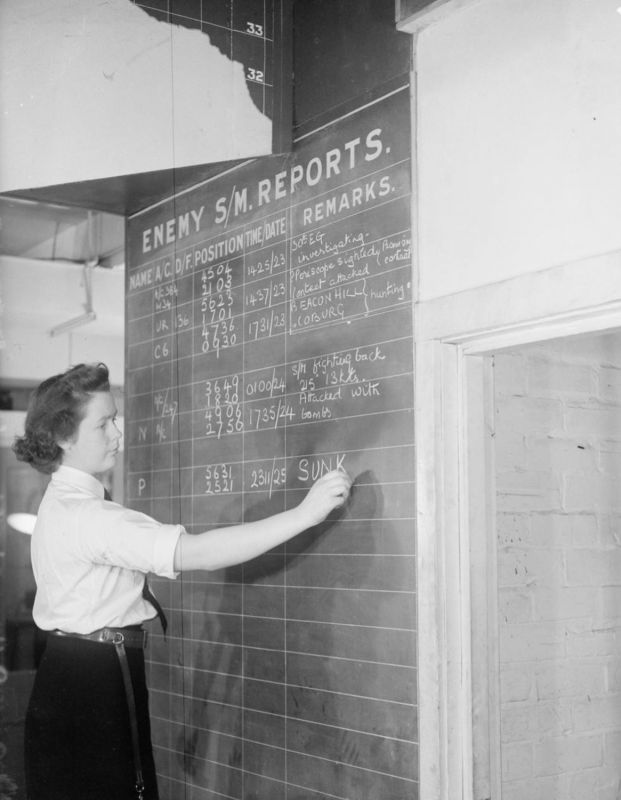 33
32
ENEMY S/M. REPORTS.
NAME A/C. D/F. POSITION TIME/DATE REMARKS.
4504
2103 1425/23
investigating
Periscope sighted
contact attacked
W34 5623 1437/23
BEACON HILL } hunting.
COBURG
UR 136 4736 1731/23
C6 0930
S/M fighting back
3649 0100/24 215° 13 kts.
1820 Attacked with
N A/C 4906 1735/24 bombs
2756
P 5631 2311/25 SUNK
2521